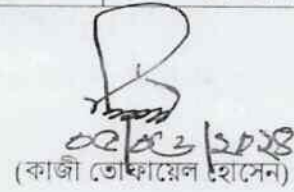 ০৫|০৩|২০২৪
(কাজী তোফায়েল হোসেন)